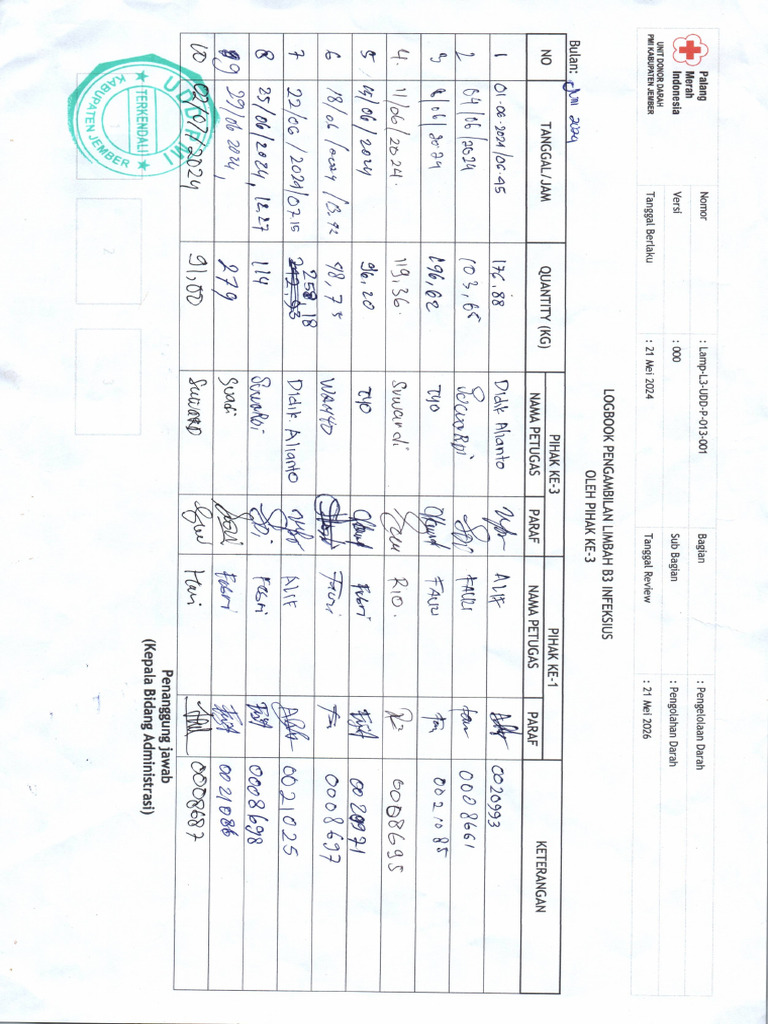 Palang
Merah
Indonesia
UNIT DONOR DARAH
PMI KABUPATEN JEMBER
Nomor : Lamp-L3-UDD-P-013-001 Bagian : Pengelolaan Darah
Versi : 000 Sub Bagian : Pengolahan Darah
Tanggal Berlaku : 21 Mei 2024 Tanggal Review : 21 Mei 2026
LOGBOOK PENGAMBILAN LIMBAH B3 INFEKSIUS
OLEH PIHAK KE-3
Bulan: 2024
NO TANGGAL/ JAM QUANTITY (KG) PIHAK KE-3 PIHAK KE-1 KETERANGAN
NAMA PETUGAS PARAF NAMA PETUGAS PARAF
1 01-06-2024/06.45 176,88 Didik Alianto Alif 0020993
2 04/06/2024 103,65 Suwardi FAUZI 0008661
3 8/06/2024 196,62 TYO FAUZI 0021085
4. 11/06/2024. 119,36. Suwardi RIO. 0008695
5 15/06/2024 96,20 TYO Febri 0020971
6 18/06/2024/13.42 48,75 WAHYO Fauzi 0008697
7 22/06/2024/07.15 258,18 Didik. Alianto Alif 0021025
8 25/06/2024, 12.27 114 Suwardi Febri 0008698
9 29/06 2024, 279 Suadi Febri 0021086
10 02/07/2024 91,00 SUWARD Hari 0008687
UDD PMI
TERKENDALI
KABUPATEN JEMBER
2
3
Penanggung jawab
(Kepala Bidang Administrasi)